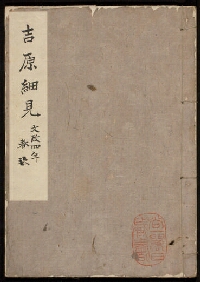 吉原細見
文政四年
春